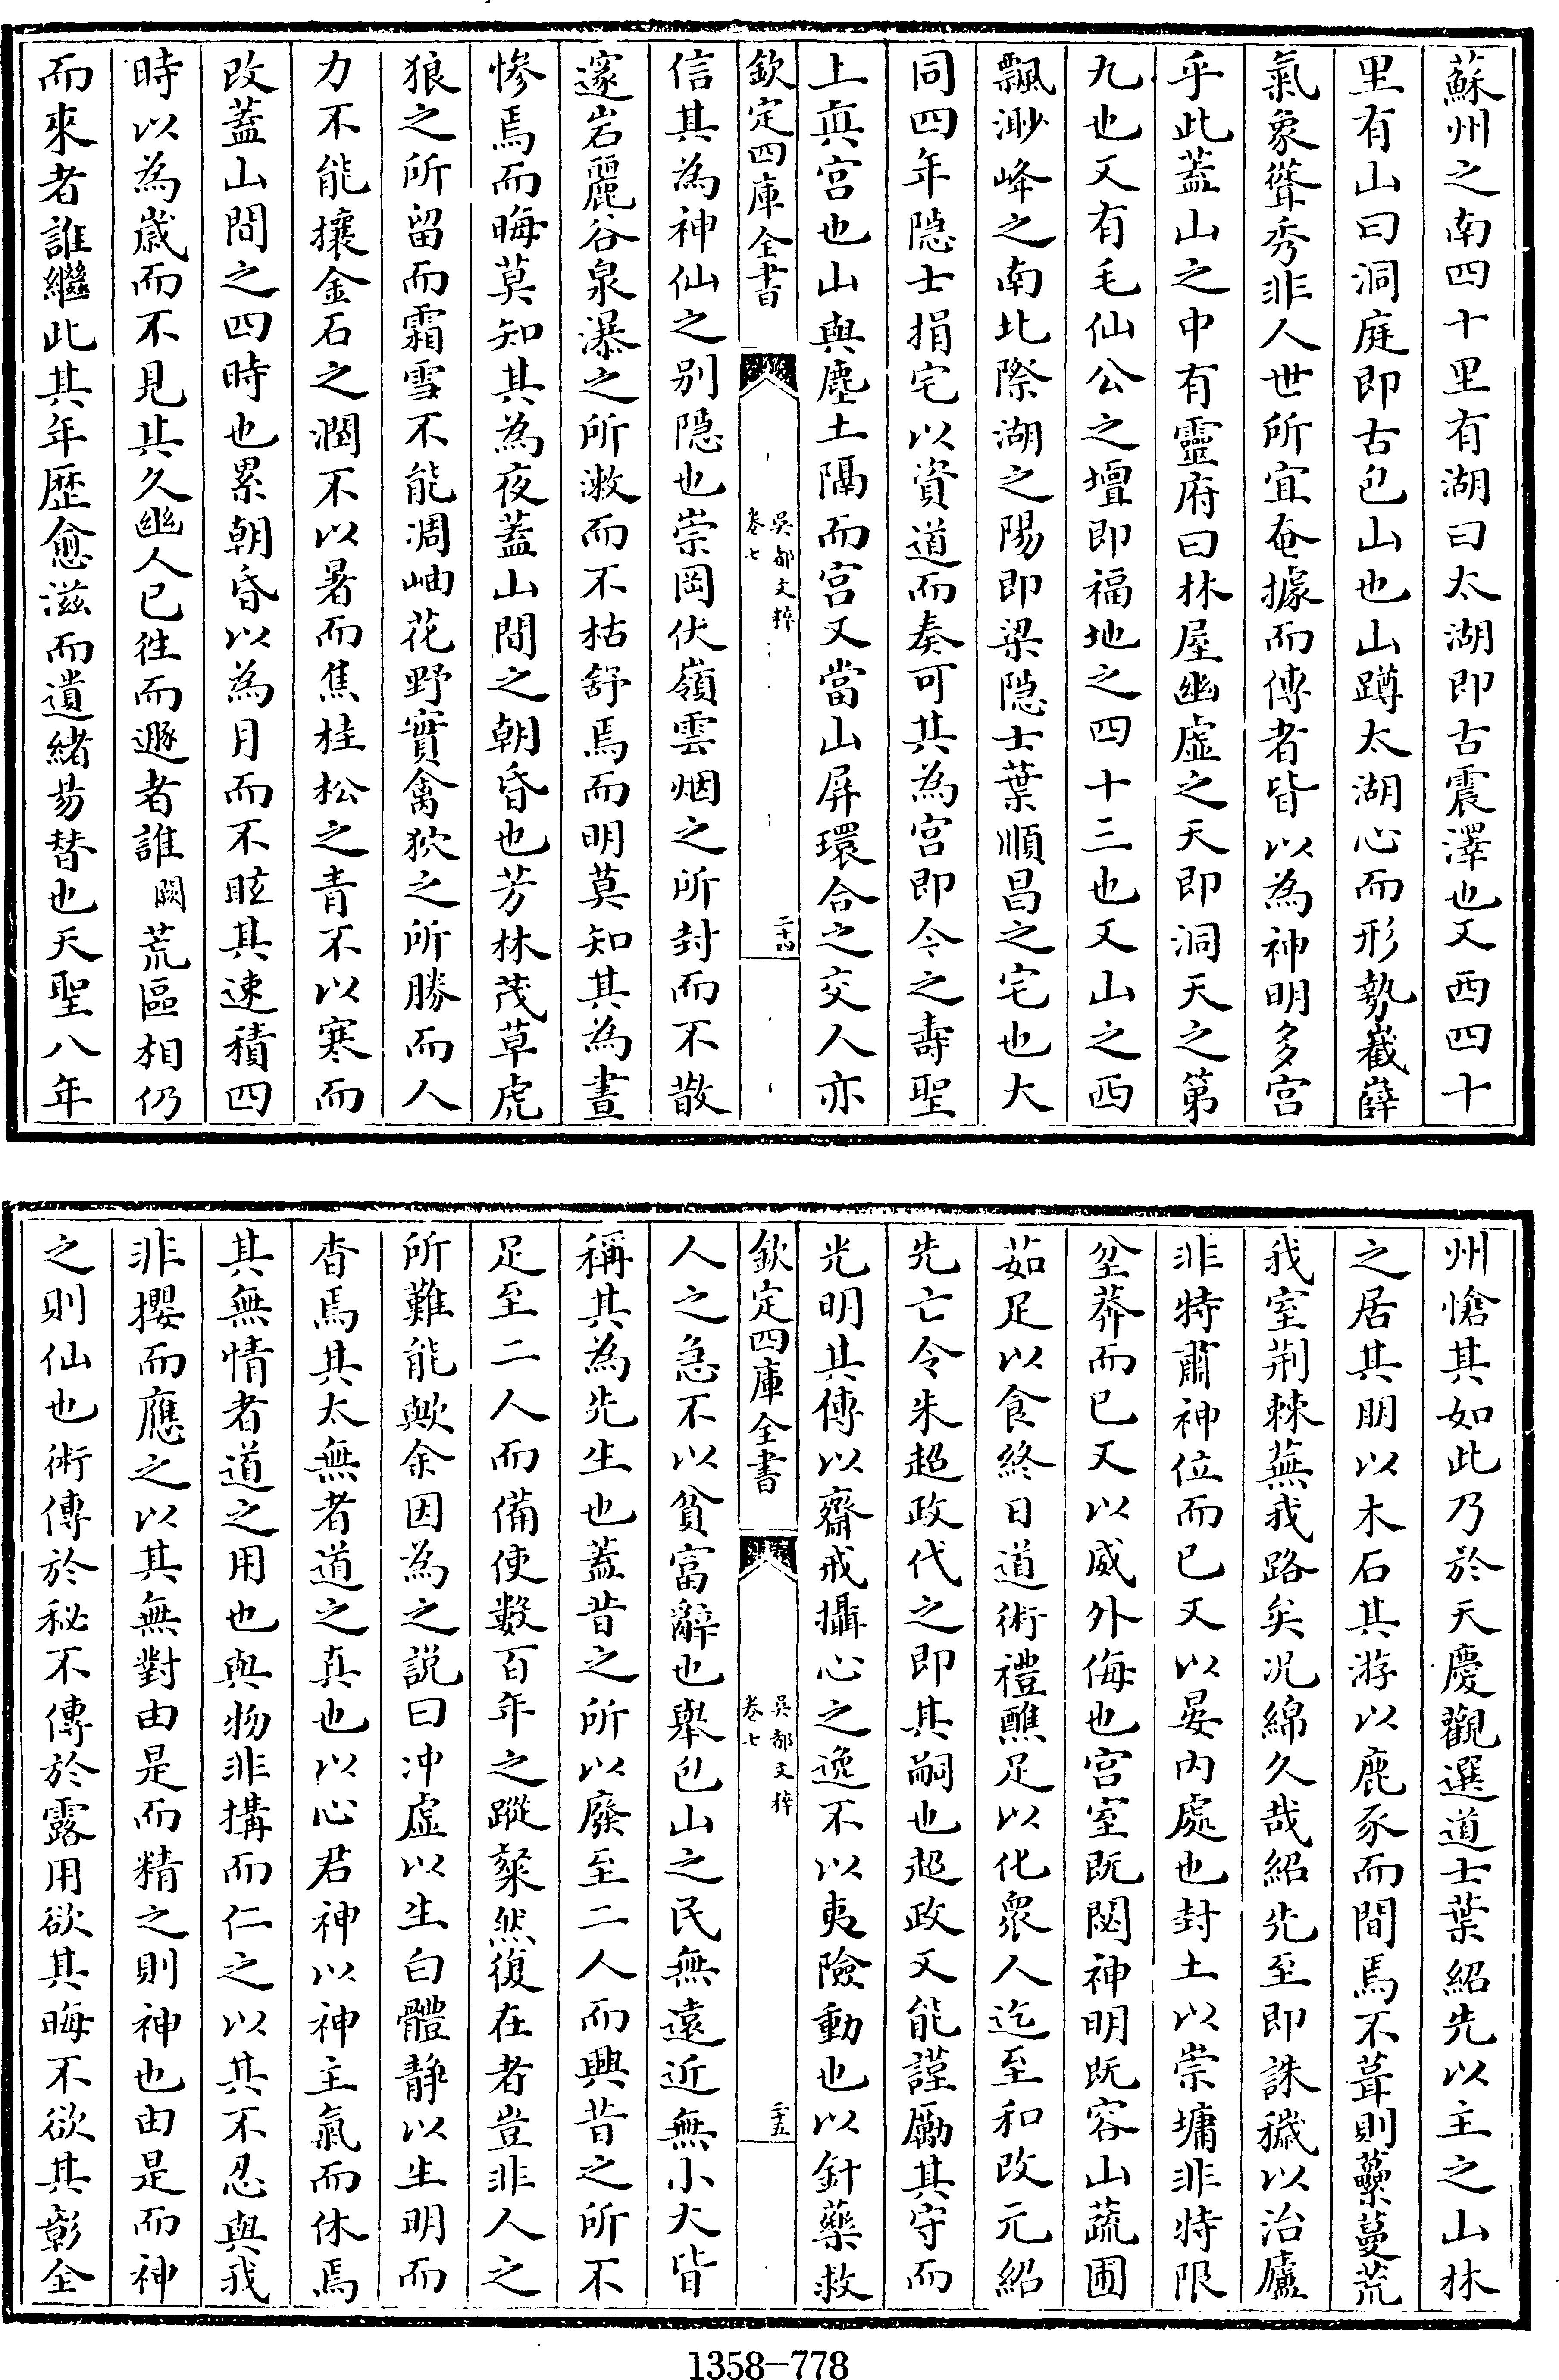 蘇州之南四十里有湖曰太湖即古震澤也又西四十
里有山曰洞庭即古包山也山蹲太湖心而形勢巀嶭
氣象聳秀非人世所宜奄據而傳者皆以為神明多宫
乎此蓋山之中有靈府曰林屋幽虛之天即洞天之第
九也又有毛仙公之壇即福地之四十三也又山之西
飄渺峰之南北際湖之陽即梁隠士葉順昌之宅也大
同四年隠士捐宅以資道而奏可其為宫即今之壽聖
上真宫也山與塵土隔而宫又當山屏環合之交人亦
欽定四庫全書
吳都文粹
卷七
二十四
信其為神仙之别隠也崇岡伏嶺雲烟之所封而不散
邃岩麗谷泉瀑之所潄而不枯舒焉而明莫知其為晝
慘焉而晦莫知其為夜蓋山間之朝昏也芳林茂草虎
狼之所留而霜雪不能凋岫花野實禽狖之所勝而人
力不能攘金石之潤不以暑而焦桂松之青不以寒而
改蓋山間之四時也累朝昏以為月而不眩其速積四
時以為嵗而不見其久幽人已徃而遯者誰闕荒區相仍
而來者誰繼此其年歴愈滋而遺緒昜替也天聖八年
州愴其如此乃於天慶觀選道士葉紹先以主之山林
之居其朋以木石其游以鹿豕而間焉不葺則虆蔓荒
我室荆棘蕪我路矣况綿久哉紹先至即誅穢以治廬
非特肅神位而已又以晏内處也封土以崇墉非特限
坌莽而已又以威外侮也宫室既閟神明既容山蔬圃
茹足以食終日道術禮醮足以化衆人迄至和改元紹
先亡令朱超政代之即其嗣也超政又能謹勵其守而
光明其傳以齋戒攝心之逸不以夷險動也以針藥救
欽定四庫全書
吳都文粹
卷七
二十五
人之急不以貧富辭也舉包山之民無遠近無小大皆
稱其為先生也蓋昔之所以廢至二人而興昔之所不
足至二人而備使數百年之蹤粲然復在者豈非人之
所難能歟余因為之説曰冲虛以生白體静以生明而
杳焉其太無者道之真也以心君神以神主氣而休焉
其無情者道之用也與物非搆而仁之以其不忍與我
非攖而應之以其無對由是而精之則神也由是而神
之則仙也術傳於秘不傳於露用欲其晦不欲其彰全
1358-778